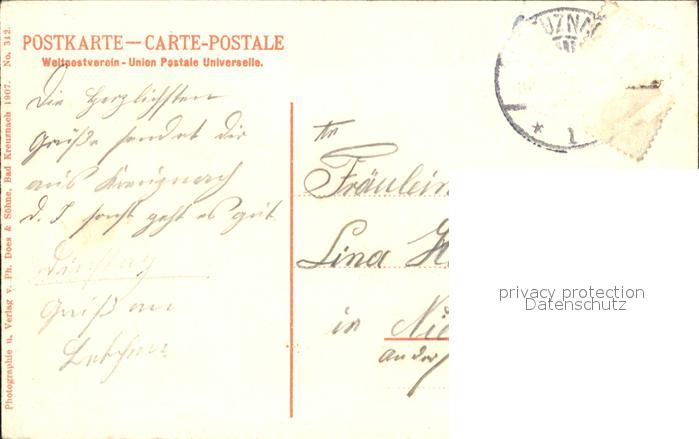 POSTKARTE — CARTE-POSTALE
Weltpostverein - Union Postale Universelle.
Photographie u. Verlag v. Ph. Does & Söhne, Bad Kreuznach 1907. No. 342.
UZNA
* 1
Die Herzlichsten
Grüße sendet dir
aus Kreuznach
D. J. sonst geht es gut
Gruß an
Fräulein
Lina
in Nie
an der
privacy protection
Datenschutz